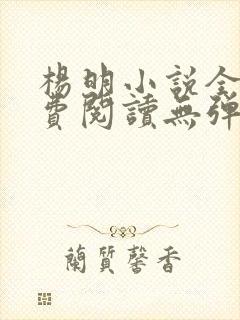 楊明小說全
費閱讀無彈
蘭質馨香